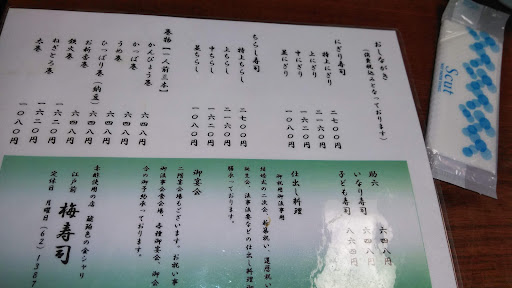 おしながき
(消費税込みとなっております)
にぎり寿司
特上にぎり 二七〇〇円
上にぎり 二一六〇円
中にぎり 一三〇〇円
並にぎり 一〇八〇円
ちらし寿司
特上ちらし 二七〇〇円
上ちらし 二一六〇円
中ちらし
並ちらし 一〇八〇円
巻物【一人前三本】
かんぴょう巻 六四八円
かっぱ巻 六四八円
うめ巻 六四八円
ひっぱり巻(納豆) 六四八円
お新香巻 六四八円
鉄火巻 一〇八〇円
ねぎとろ巻 一〇八〇円
太巻 一〇八〇円
助六 六四八円
いなり寿司 六四八円
子ども寿司 八六四円
仕出し料理
御祝儀御法事用
誕生会、法事法要などの仕出し料理
勝示っております。
御宴会
二階宴会場もございます。お祝い事
御法事会食会場、各種御宴会、御会
合の御予約承っております。
赤酢使用の店 琥珀色の赤シャリ
江戸前 梅寿司
定休日 月曜日 (62) 1387
Scut